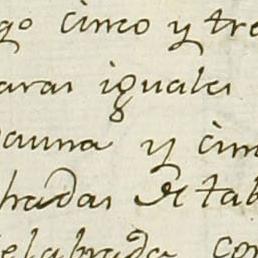 go cinco y tre
aras iguales
auna y cin
hadas de tab
elabrada con